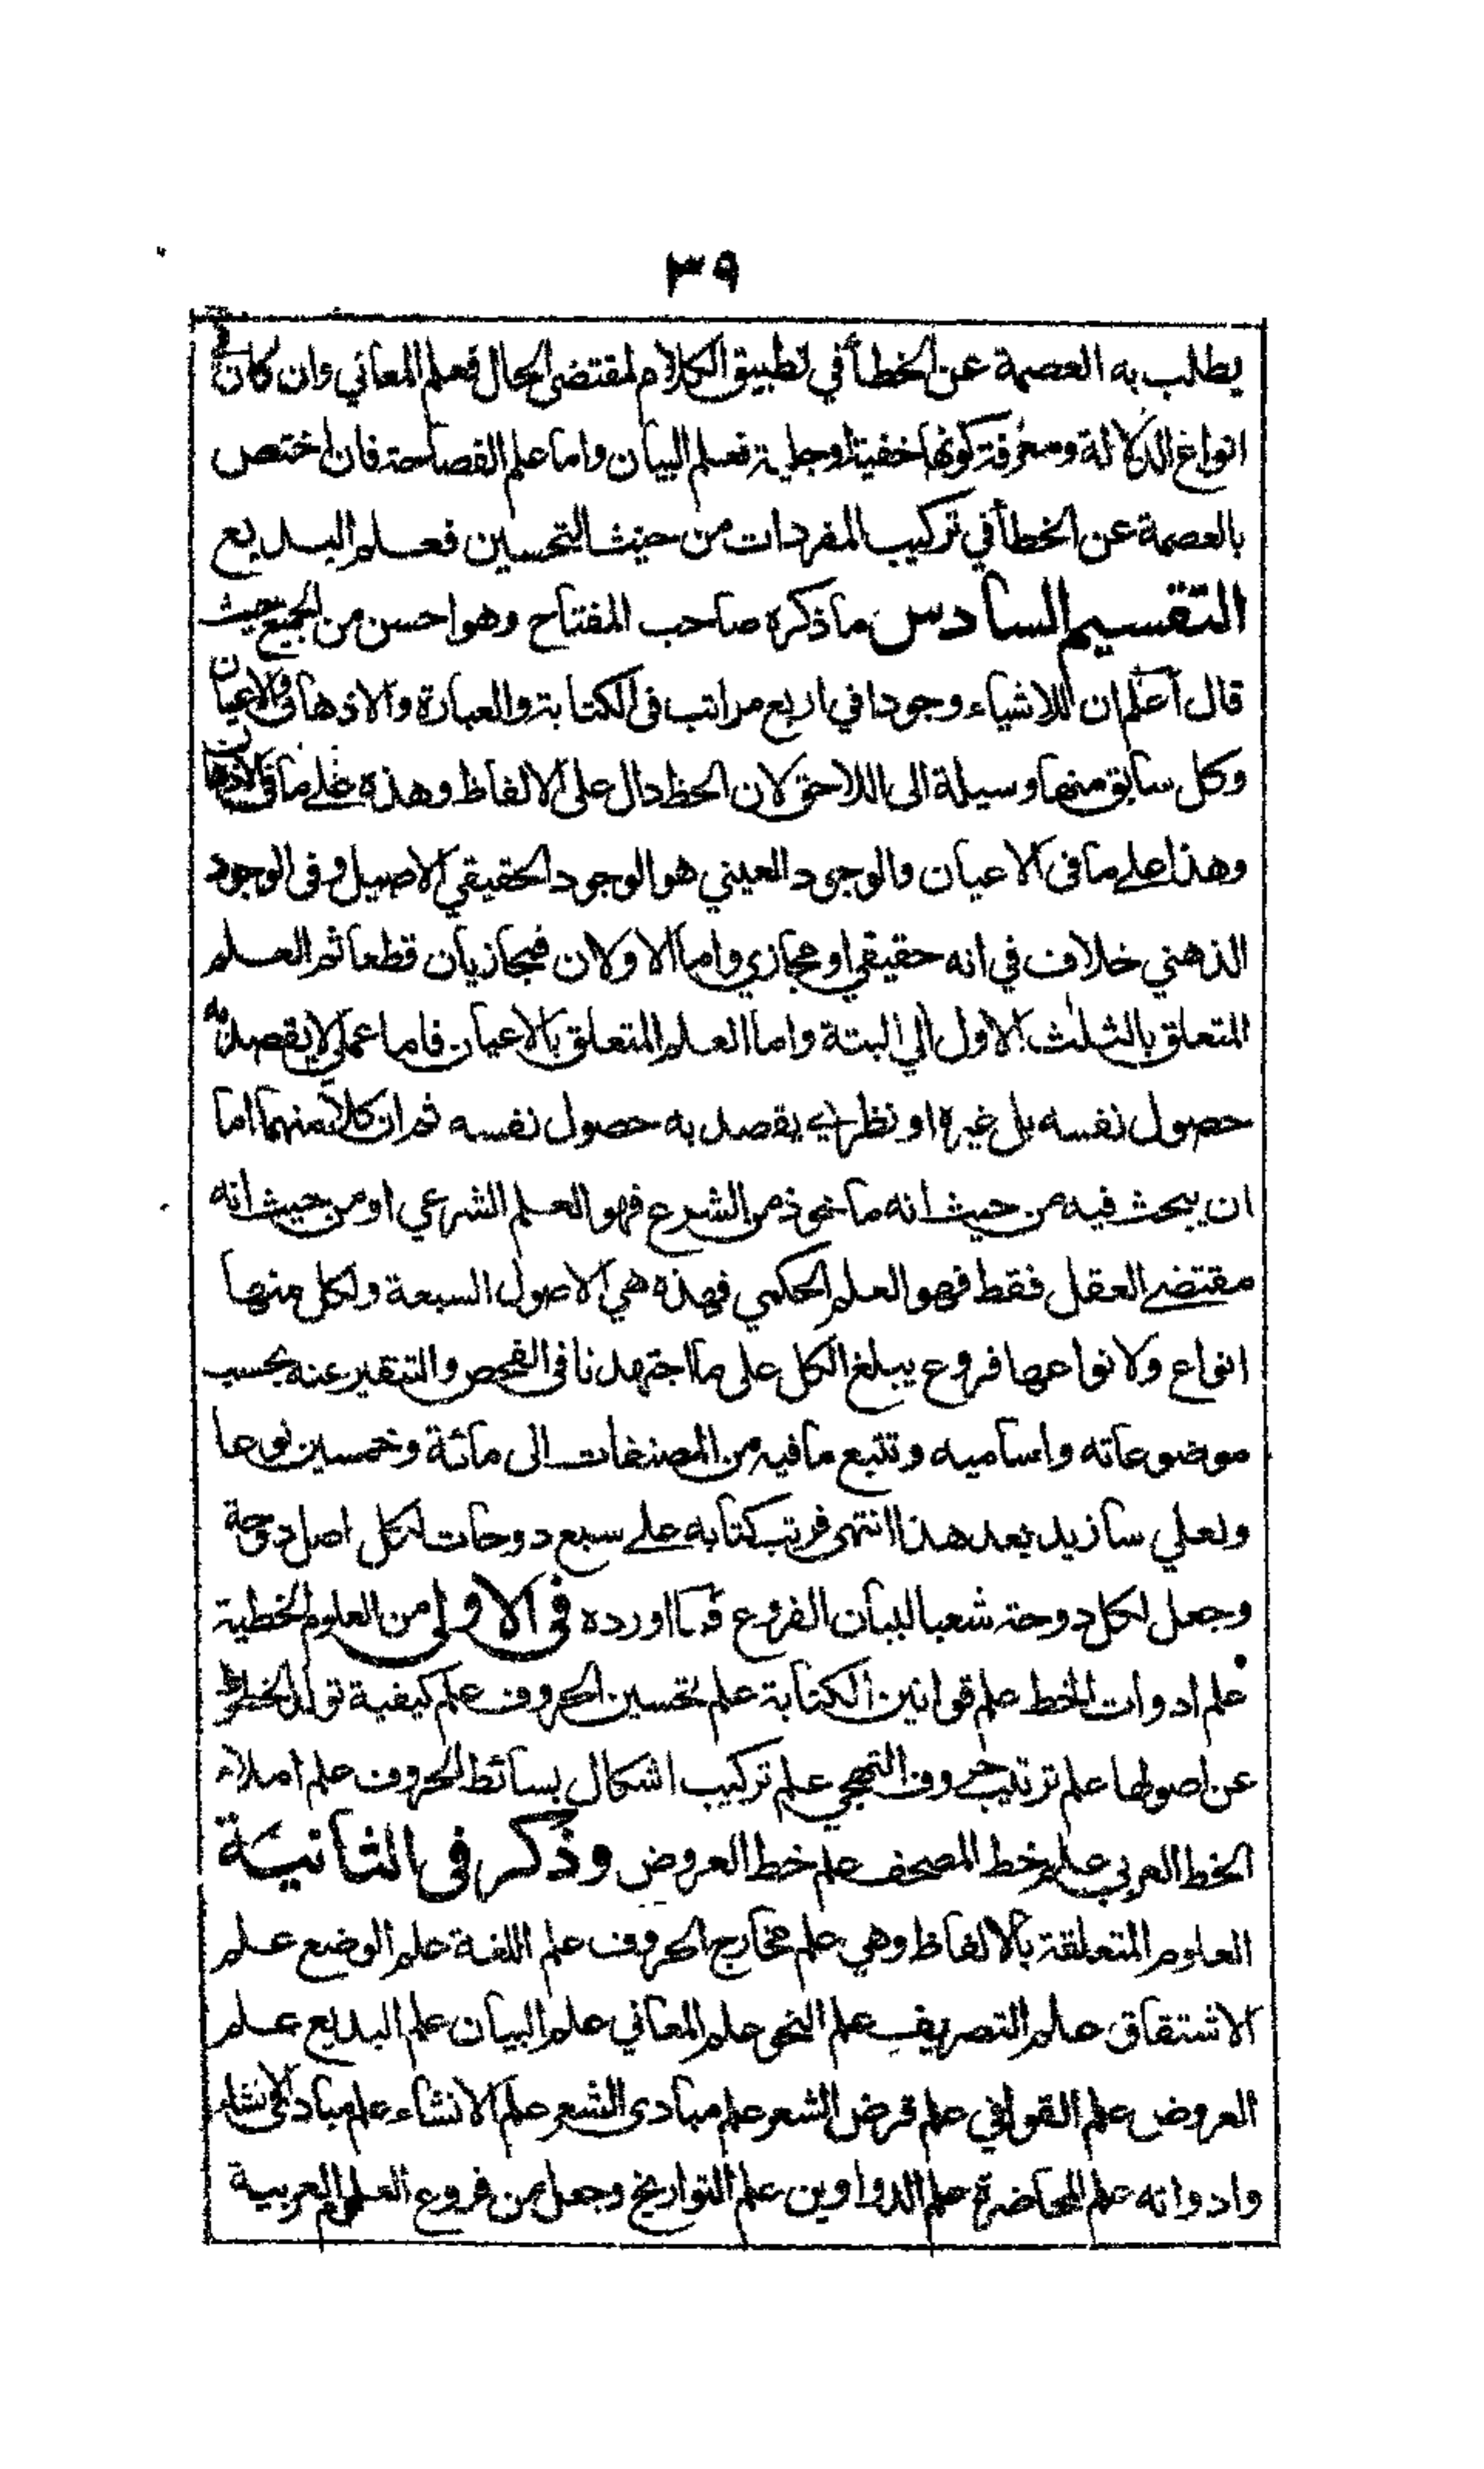 ٣٩
يطلب به العصمة عن الخطأ في تطبيق الكلام لمقتضى الحال فعلم المعاني وان كان في
انواع الدلالة ومعرفة كونها خفية او جلية فعلم البيان واما علم الفصاحة فان اختص
بالعصمة عن الخطأ في تركيب المفردات من حيث التحسين فعلم البديع
التقسيم السادس ما ذكره صاحب المفتاح وهو احسن من الجميع حيث
قال اعلم ان للاشياء وجودا في اربع مراتب فى الكتابة والعبارة والاذهان والاعيان
وكل سابق منها وسيلة الى اللاحق لان الخط دال على الالفاظ وهذه على ما فى الاذهان
وهذا على ما فى الاعيان والوجود العيني هو الوجود الحقيقي الاصيل وفى الوجود
الذهني خلاف في انه حقيقي او مجازي واما الاولان فمجازيان قطعا ثم العلم
المتعلق بالثلث الاول آلي البتة واما العلم المتعلق بالاعيان فاما عملي لا يقصد به
حصول نفسه بل غيره او نظري يقصد به حصول نفسه ثم ان كلا منهما اما
ان يبحث فيه من حيث انه ماخوذ من الشرع فهو العلم الشرعي او من حيث انه
مقتضى العقل فقط فهو العلم الحكمي فهذه هي الاصول السبعة ولكل منها
انواع ولانواعها فروع يبلغ الكل على ما اجتهدنا فى الفحص والتنقير عنه بحسب
موضوعاته واساميه وتتبع ما فيه من المصنفات الى مائة وخمسين نوعا
ولعلي سازيد بعد هذا انتهى فرتب كتابه على سبع دوحات لكل اصل دوحة
وجعل لكل دوحة شعبا لبيان الفروع فما اورده فى الاولى من العلوم الخطية
علم ادوات الخط علم قوانين الكتابة علم تحسين الحروف علم كيفية تولد الخطوط
عن اصولها علم ترتيب حروف التهجي علم تركيب اشكال بسائط الحروف علم املاء
الخط العربي علم خط المصحف علم خط العروض وذكر فى الثانية
العلوم المتعلقة بالالفاظ وهي علم مخارج الحروف علم اللغة علم الوضع علم
الاشتقاق علم التصريف علم النحو علم المعاني علم البيان علم البديع علم
العروض علم القوافي علم قرض الشعر علم مبادى الشعر علم الانشاء علم مبادى الانشاء
وادواته علم المحاضرة علم الدواوين علم التواريخ وجعل من فروع العلوم العربية